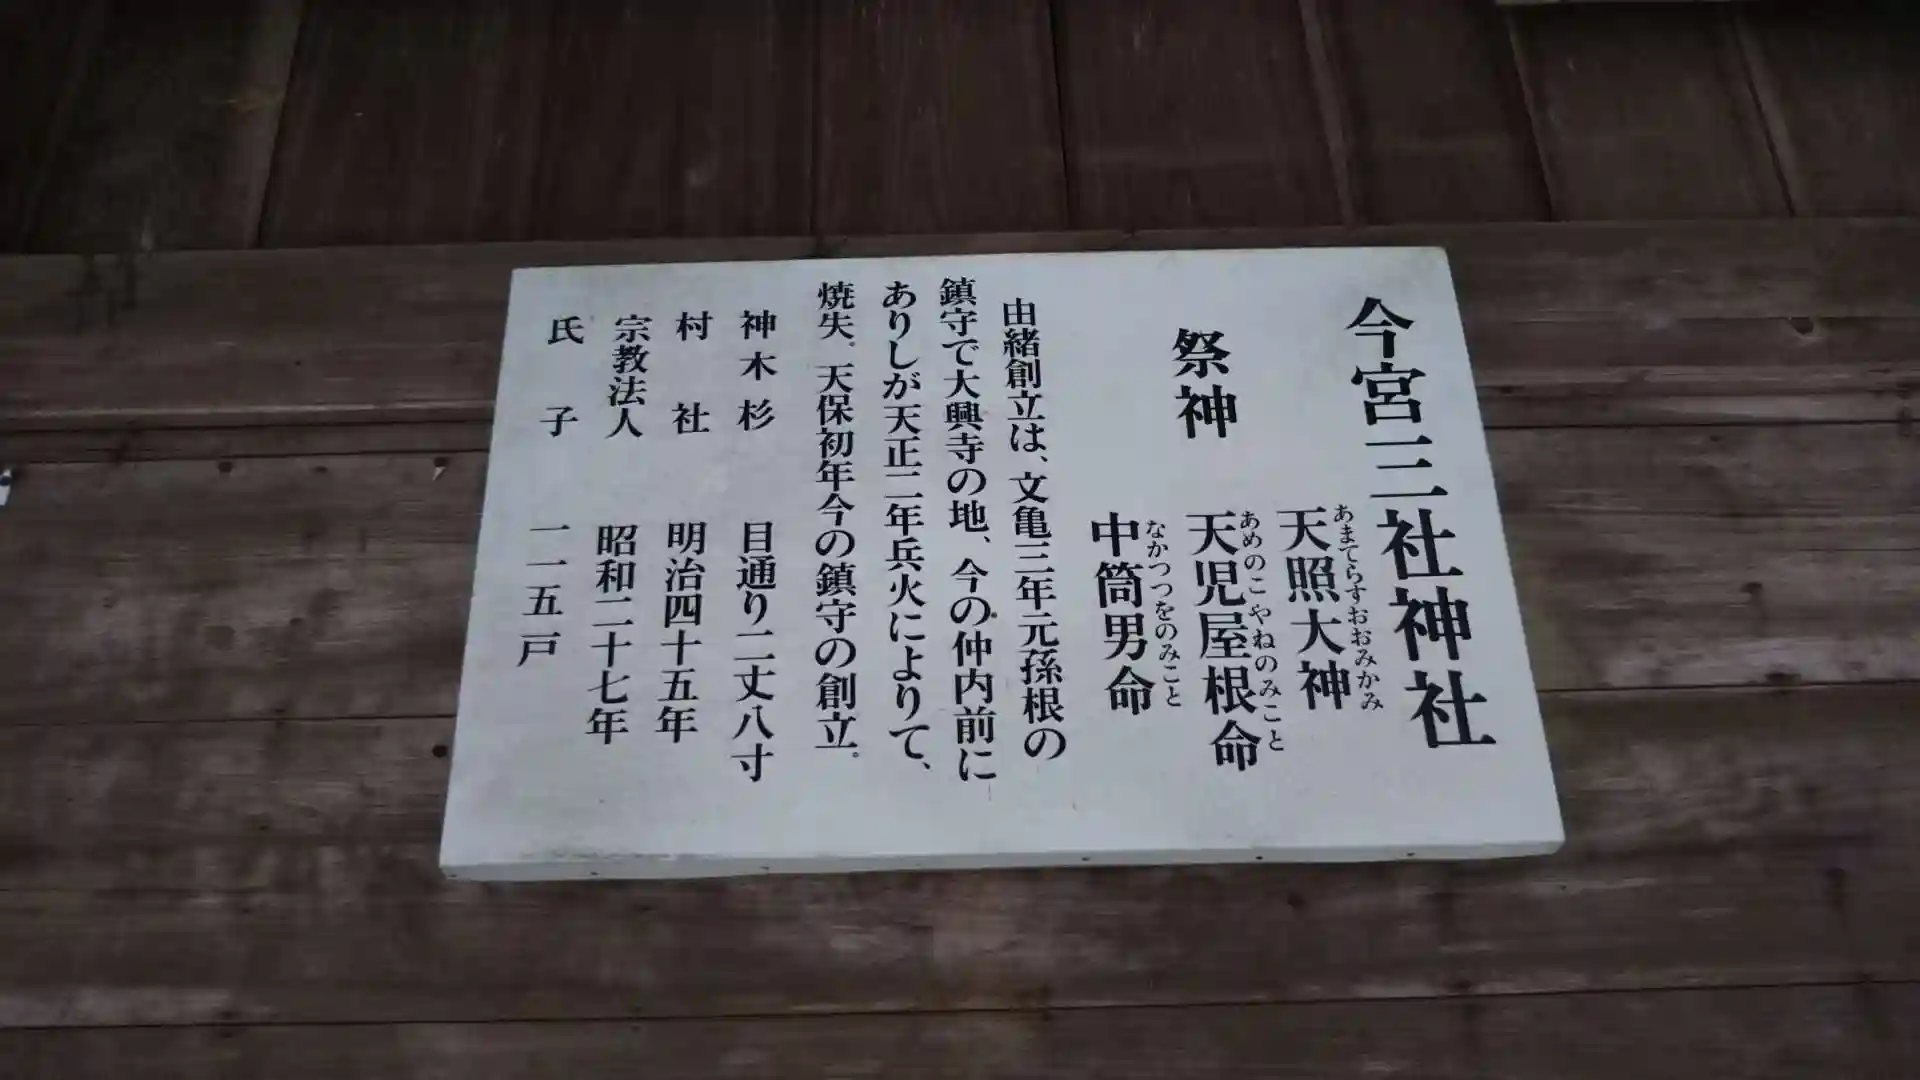 今宮三社神社
あまてらすおおみかみ
天照大神
祭神
あめのこやねのみこと
天児屋根命
なかつつをのみこと
中筒男命
由緒創立は、文亀三年元孫根の
鎮守で大興寺の地、今の仲内前に
ありしが天正二年兵火によりて、
焼失。天保初年今の鎮守の創立。
神木杉 目通り二丈八寸
村社 明治四十五年
宗教法人 昭和二十七年
氏子 一一五戸